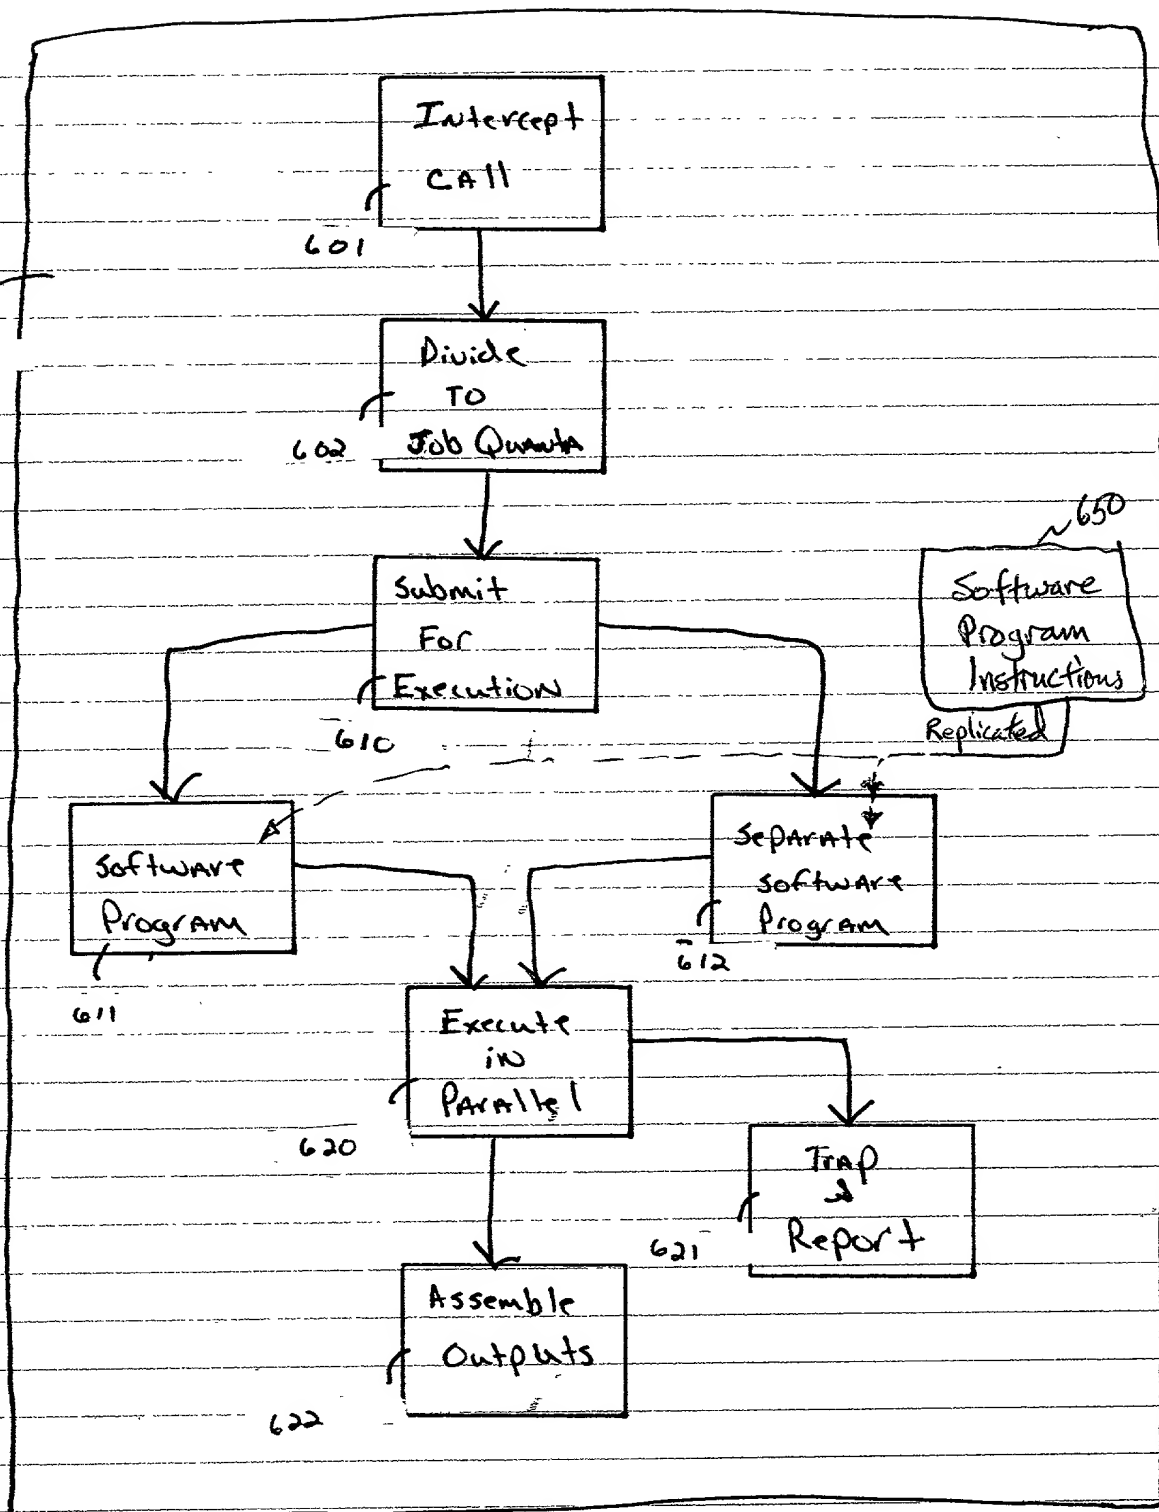 Intercept
Call
601
Divide
To
Job Quanta
602
650
Submit
For
Execution
610
Software
Program
Instructions
Replicated
Software
Program
611
Separate
Software
Program
612
Execute
in
Parallel
620
Trap
&
Report
621
Assemble
Outputs
622